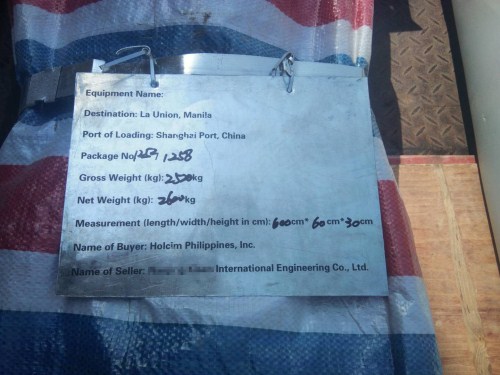 Equipment Name:
Destination: La Union, Manila
Port of Loading: Shanghai Port, China
Package No 1257, 1258
Gross Weight (kg): 2520kg
Net Weight (kg): 2600kg
Measurement (length/width/height in cm): 600cm* 60cm*30cm
Name of Buyer: Holcim Philippines, Inc.
Name of Seller: International Engineering Co., Ltd.